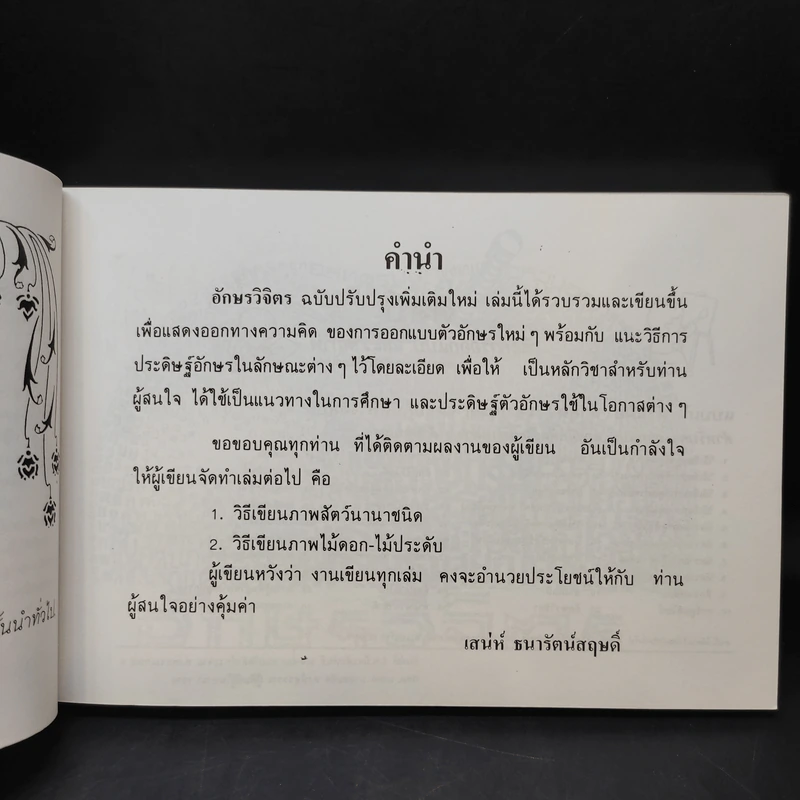 คำนำ
อักษรวิจิตร ฉบับปรับปรุงเพิ่มเติมใหม่ เล่มนี้ได้รวบรวมและเขียนขึ้น
เพื่อแสดงออกทางความคิด ของการออกแบบตัวอักษรใหม่ ๆ พร้อมกับ แนะวิธีการ
ประดิษฐ์อักษรในลักษณะต่าง ๆ ไว้โดยละเอียด เพื่อให้ เป็นหลักวิชาสำหรับท่าน
ผู้สนใจ ได้ใช้เป็นแนวทางในการศึกษา และประดิษฐ์ตัวอักษรใช้ในโอกาสต่าง ๆ
ขอขอบคุณทุกท่าน ที่ได้ติดตามผลงานของผู้เขียน อันเป็นกำลังใจ
ให้ผู้เขียนจัดทำเล่มต่อไป คือ
1. วิธีเขียนภาพสัตว์นานาชนิด
2. วิธีเขียนภาพไม้ดอก-ไม้ประดับ
ผู้เขียนหวังว่า งานเขียนทุกเล่ม คงจะอำนวยประโยชน์ให้กับ ท่าน
ผู้สนใจอย่างคุ้มค่า
เสน่ห์ ธนารัตน์สฤษดิ์
ชั้นนำทั่วไป